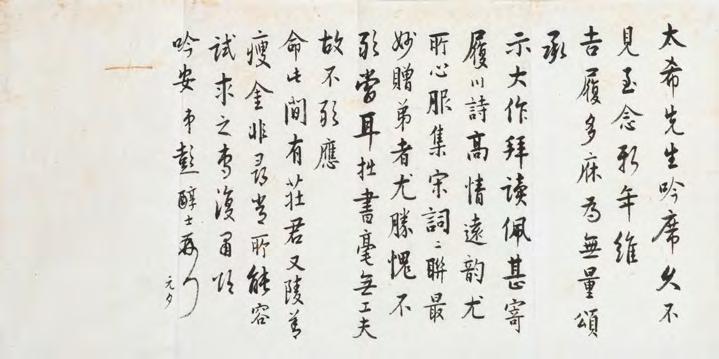 太希先生吟席久不
見至念新年維
吉履多庥為無量頌
承
示大作拜读佩甚寄
履川詩高情遠韵尤
所心服集宋詞二聯最
妙贈弟者尤勝愧不
敢當耳拙書毫無工夫
故不敢應
命此間有莊君又陵善
瘦金非尋常所能容
試求之專復留頌
吟安弟彭醇士再行
元夕